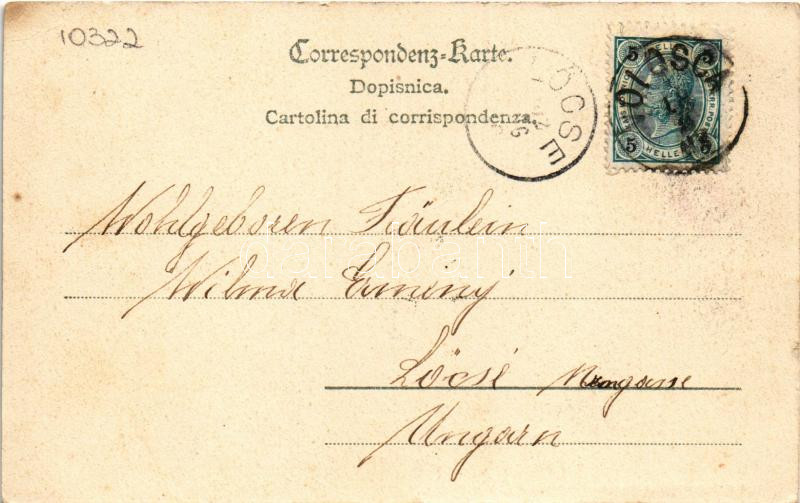 10322
Correspondenz-Karte.
Dopisnica.
Cartolina di corrispondenza.
LŐCSE
5 5
HELLER
5 5
Wohlgeboren Fräulein
Wilma
Löcse
Ungarn
darabanth